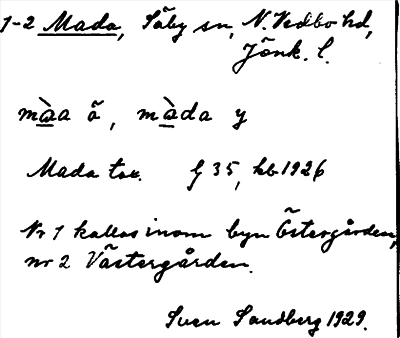 1-2 Mada, Säby sn, N. Vedbo hd,
Jönk. l.
màa ä, màda y
Mada tax. G 35, kb 1926
Nr 1 kallas inom byn Östergården,
nr 2 Västergården.
Sven Sandberg 1929.